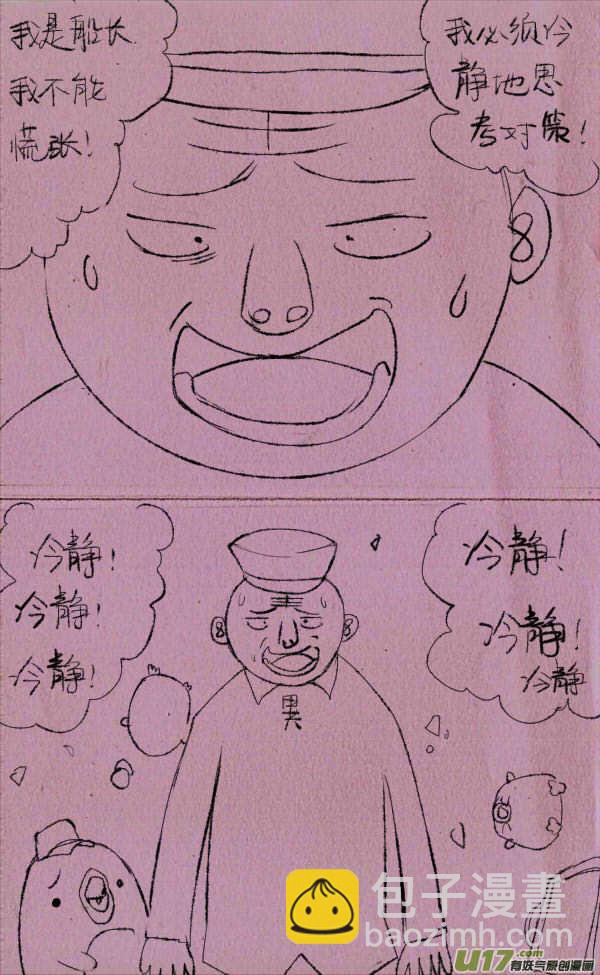 我是船长
我不能
慌张！
我必须冷
静地思
考对策！
冷静！
冷静！
冷静！
冷静！
冷静！
冷静
異
包子漫畫
baozimh.com
U17.com
有妖气原创漫画